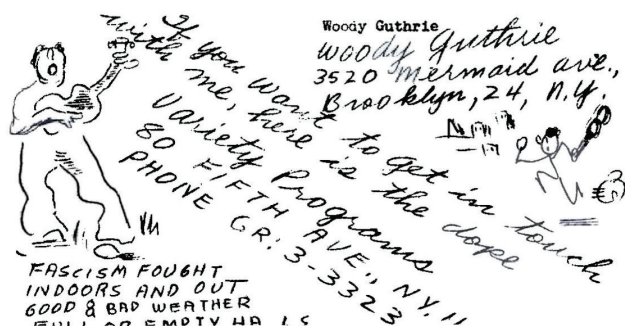 Woody Guthrie
Woody Guthrie
3520 mermaid ave.,
Brooklyn, 24, n.y.
If you want to get in touch
with me, here is the dope
Variety Programs
80 FIFTH AVE., NY.,,
PHONE GR: 3-3323
FASCISM FOUGHT
INDOORS AND OUT
GOOD & BAD WEATHER
FULL OR EMPTY HALLS